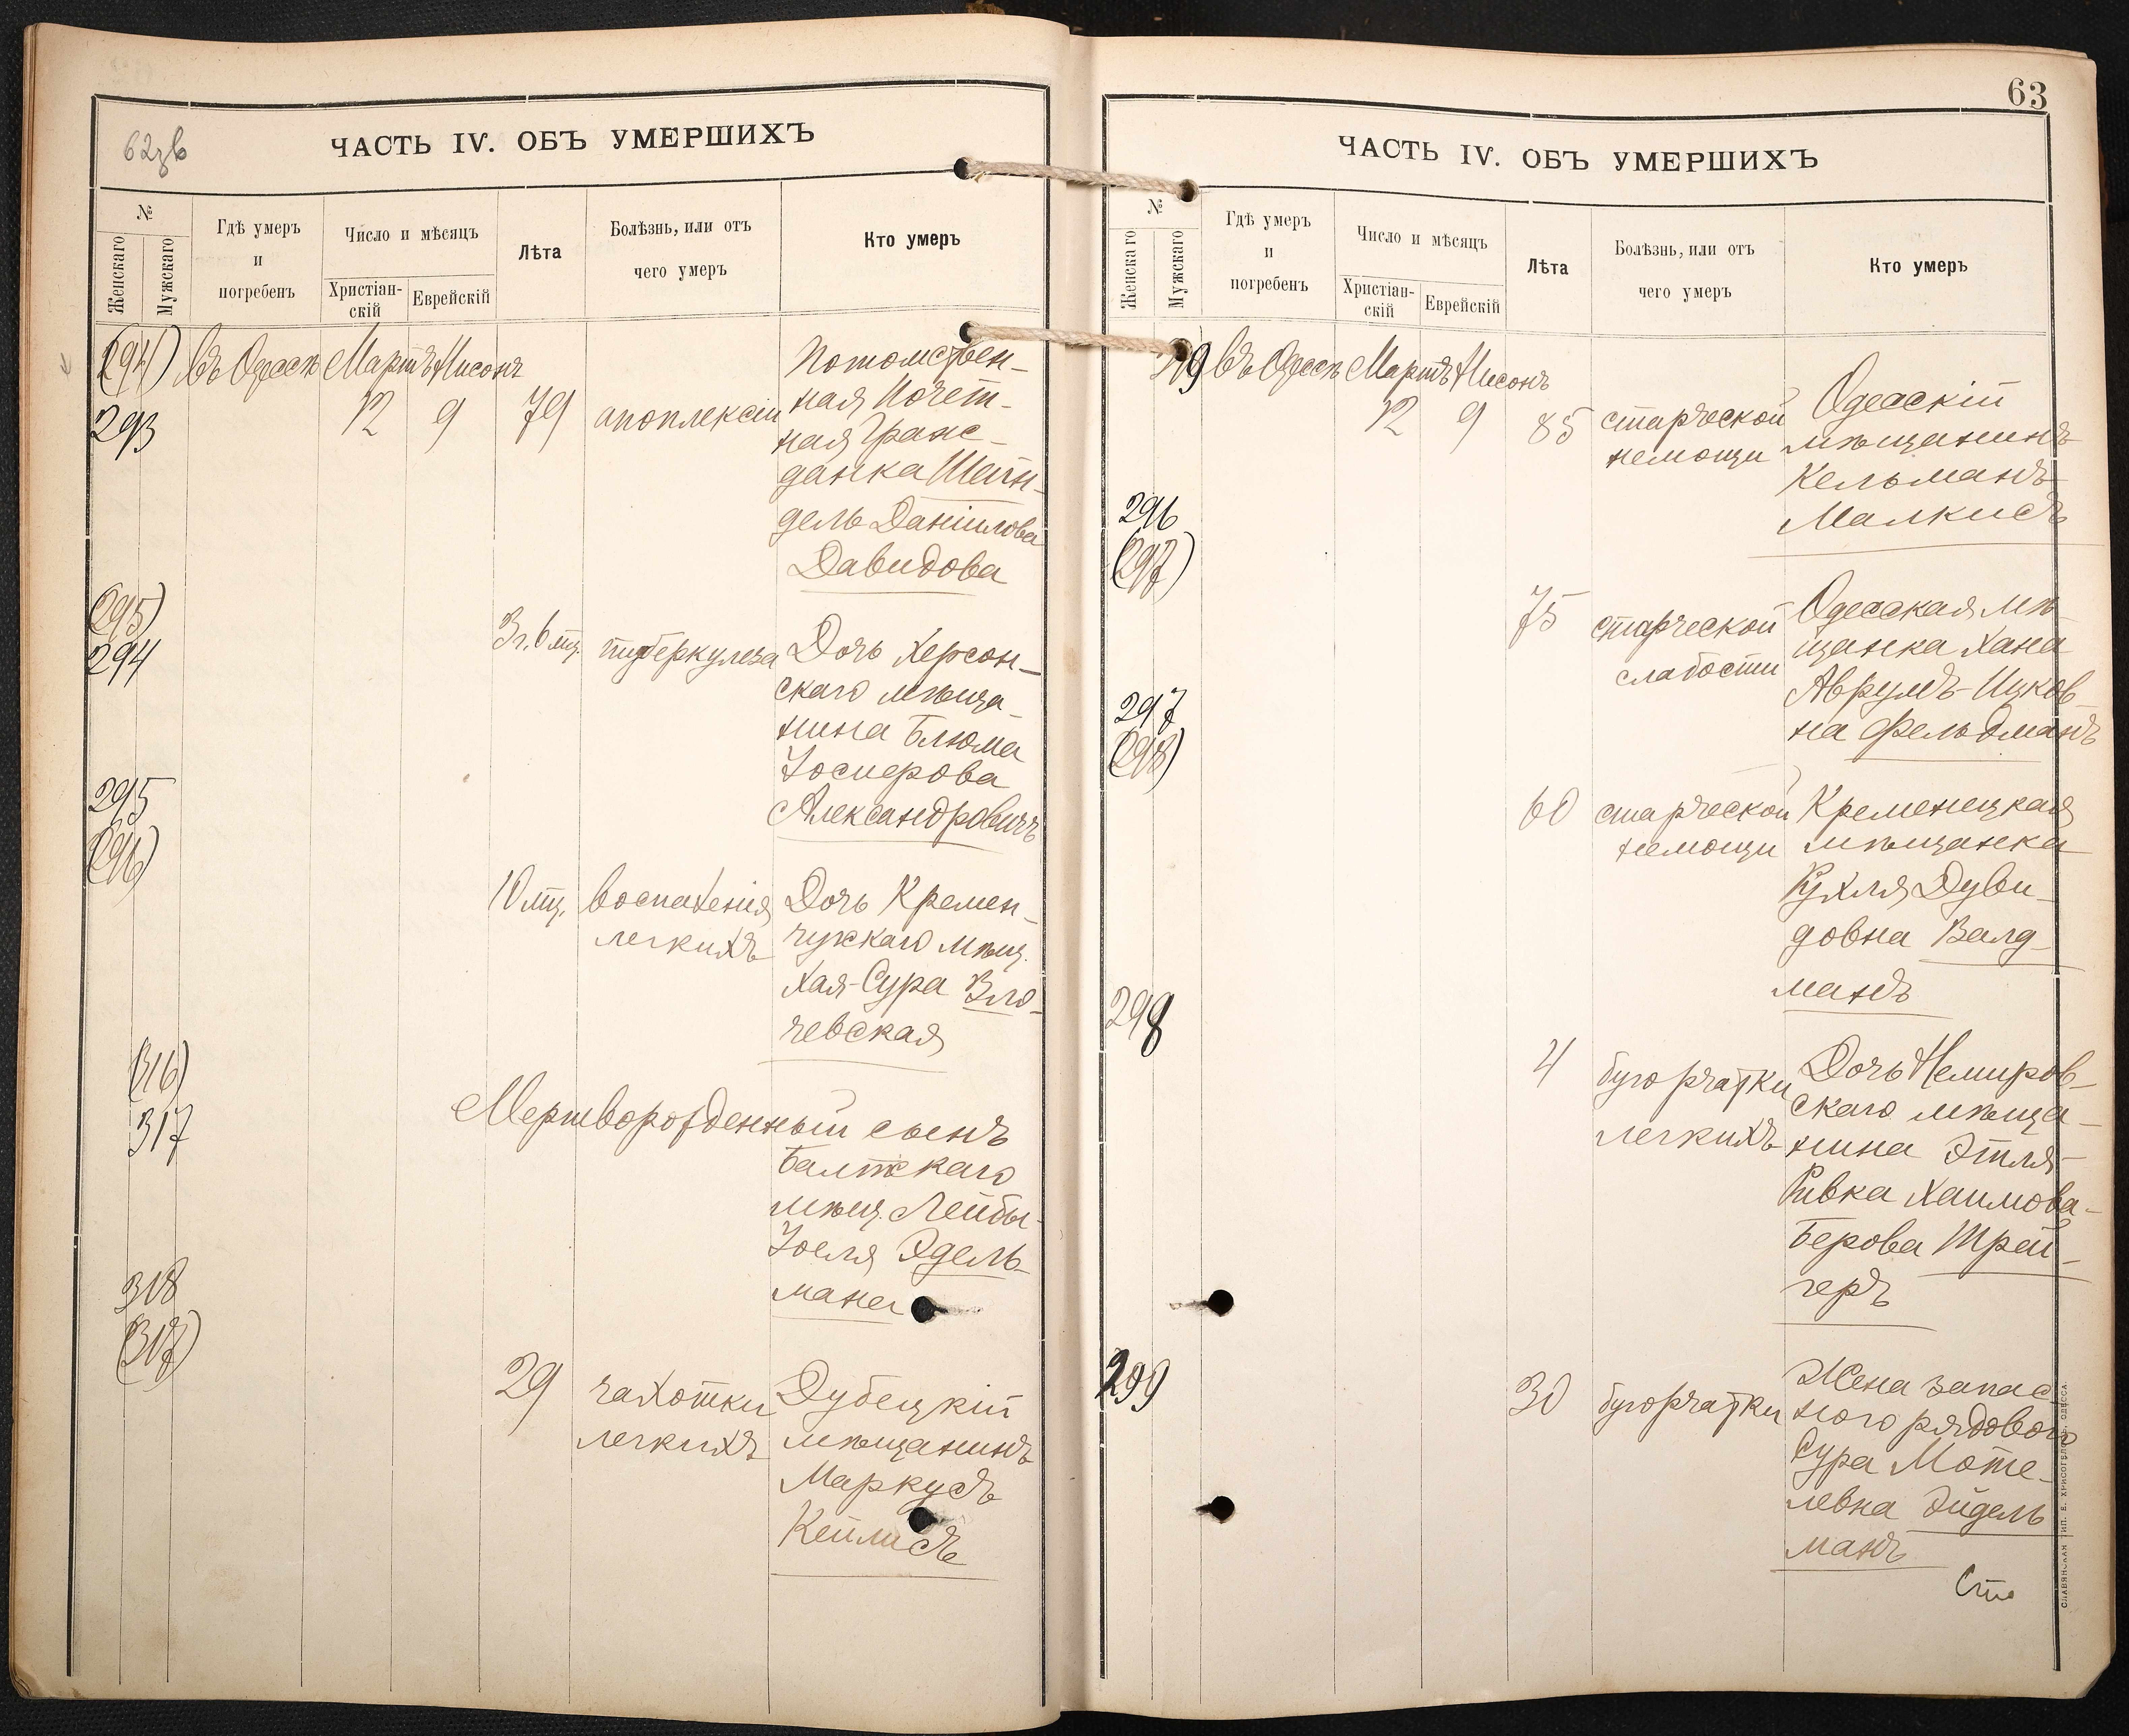 62зв
ЧАСТЬ IV. ОБЪ УМЕРШИХЪ
№
Женскаго
Мужскаго
Гдѣ умеръ
и
погребенъ
Число и мѣсяцъ
Христіан-
скій
Еврейскій
Лѣта
Болѣзнь, или отъ
чего умеръ
Кто умеръ
(294) въ Одессѣ Мартъ Нисонъ
293 12 9 79 апоплексіи
Потомствен-
ная Почет-
ная Граж-
данка Шейн-
дель Даніилова
Давидова
(295)
294 3г. 6 мц. туберкулеза
Дочь Херсон-
скаго мѣща-
нина Блюма
Іосиерова
Александровичъ
295
(296)
10 мц. воспаленія
легкихъ
Дочь Кремен-
чугскаго мѣщ.
Хая-Сура Зло-
чевская
(316)
317
Мертворожденный сынъ
Балтскаго
мѣщ. Лейбы-
Іоеля Эдель-
мана
318
(317)
29 чахотки
легкихъ
Дубецкій
мѣщанинъ
Маркусъ
Кейлисъ
63
ЧАСТЬ IV. ОБЪ УМЕРШИХЪ
№
Женскаго
Мужскаго
Гдѣ умеръ
и
погребенъ
Число и мѣсяцъ
Христіан-
скій
Еврейскій
Лѣта
Болѣзнь, или отъ
чего умеръ
Кто умеръ
319 въ Одессѣ Мартъ Нисонъ
12 9 85 старческой
немощи
Одесскій
мѣщанинъ
Кельманъ
Малкисъ
296
(297)
75 старческой
слабости
Одесская мѣ-
щанка Хана
Аврумъ-Ицков-
на Фельдманъ
297
(298)
60 старческой
немощи
Кременецкая
мѣщанка
Рухля Дуви-
довна Валд-
манъ
298
4 бугорчатки
легкихъ
Дочь Немиров-
скаго мѣща-
нина Этля-
Ривка Хаимова-
Берова Трей-
геръ
299
30 бугорчатки
Жена запас-
ного рядового
Сура Моте-
левна Эйдель
манъ
СЛАВЯНСКАЯ ТИП. Е. ХРИСОГЕЛОСЪ, ОДЕССА